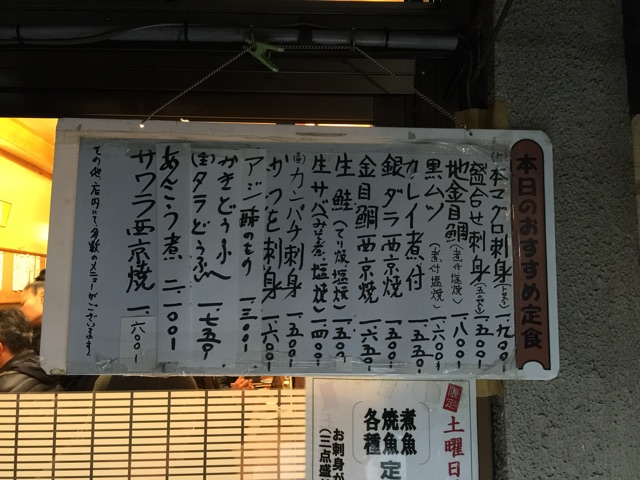 本日のおすすめ定食
本マグロ刺身(トロ入) 一、九〇〇
盛合せ刺身(五品) 一、五〇〇
地金目鯛(煮付 塩焼) 一、八〇〇
黒ムツ(煮付 塩焼) 一、六〇〇
カレイ煮付 一、五五〇
銀ダラ西京焼 一、五五〇
金目鯛西京焼 一、六五〇
生鮭(てり焼 塩焼) 一、五〇〇
生サバ(みそ煮・塩焼) 一、四〇〇
カンパチ刺身 一、五〇〇
かつを刺身 一、六〇〇
アジ酢のもの 一、三〇〇
かきどうふ
生タラどうふ 一、七五〇
あんこう煮 二、一〇〇
サワラ西京焼 一、六〇〇
その他、店内にて多数のメニューがございます
限定 土曜日
煮魚
焼魚
各種
定
お刺身が
(三点盛